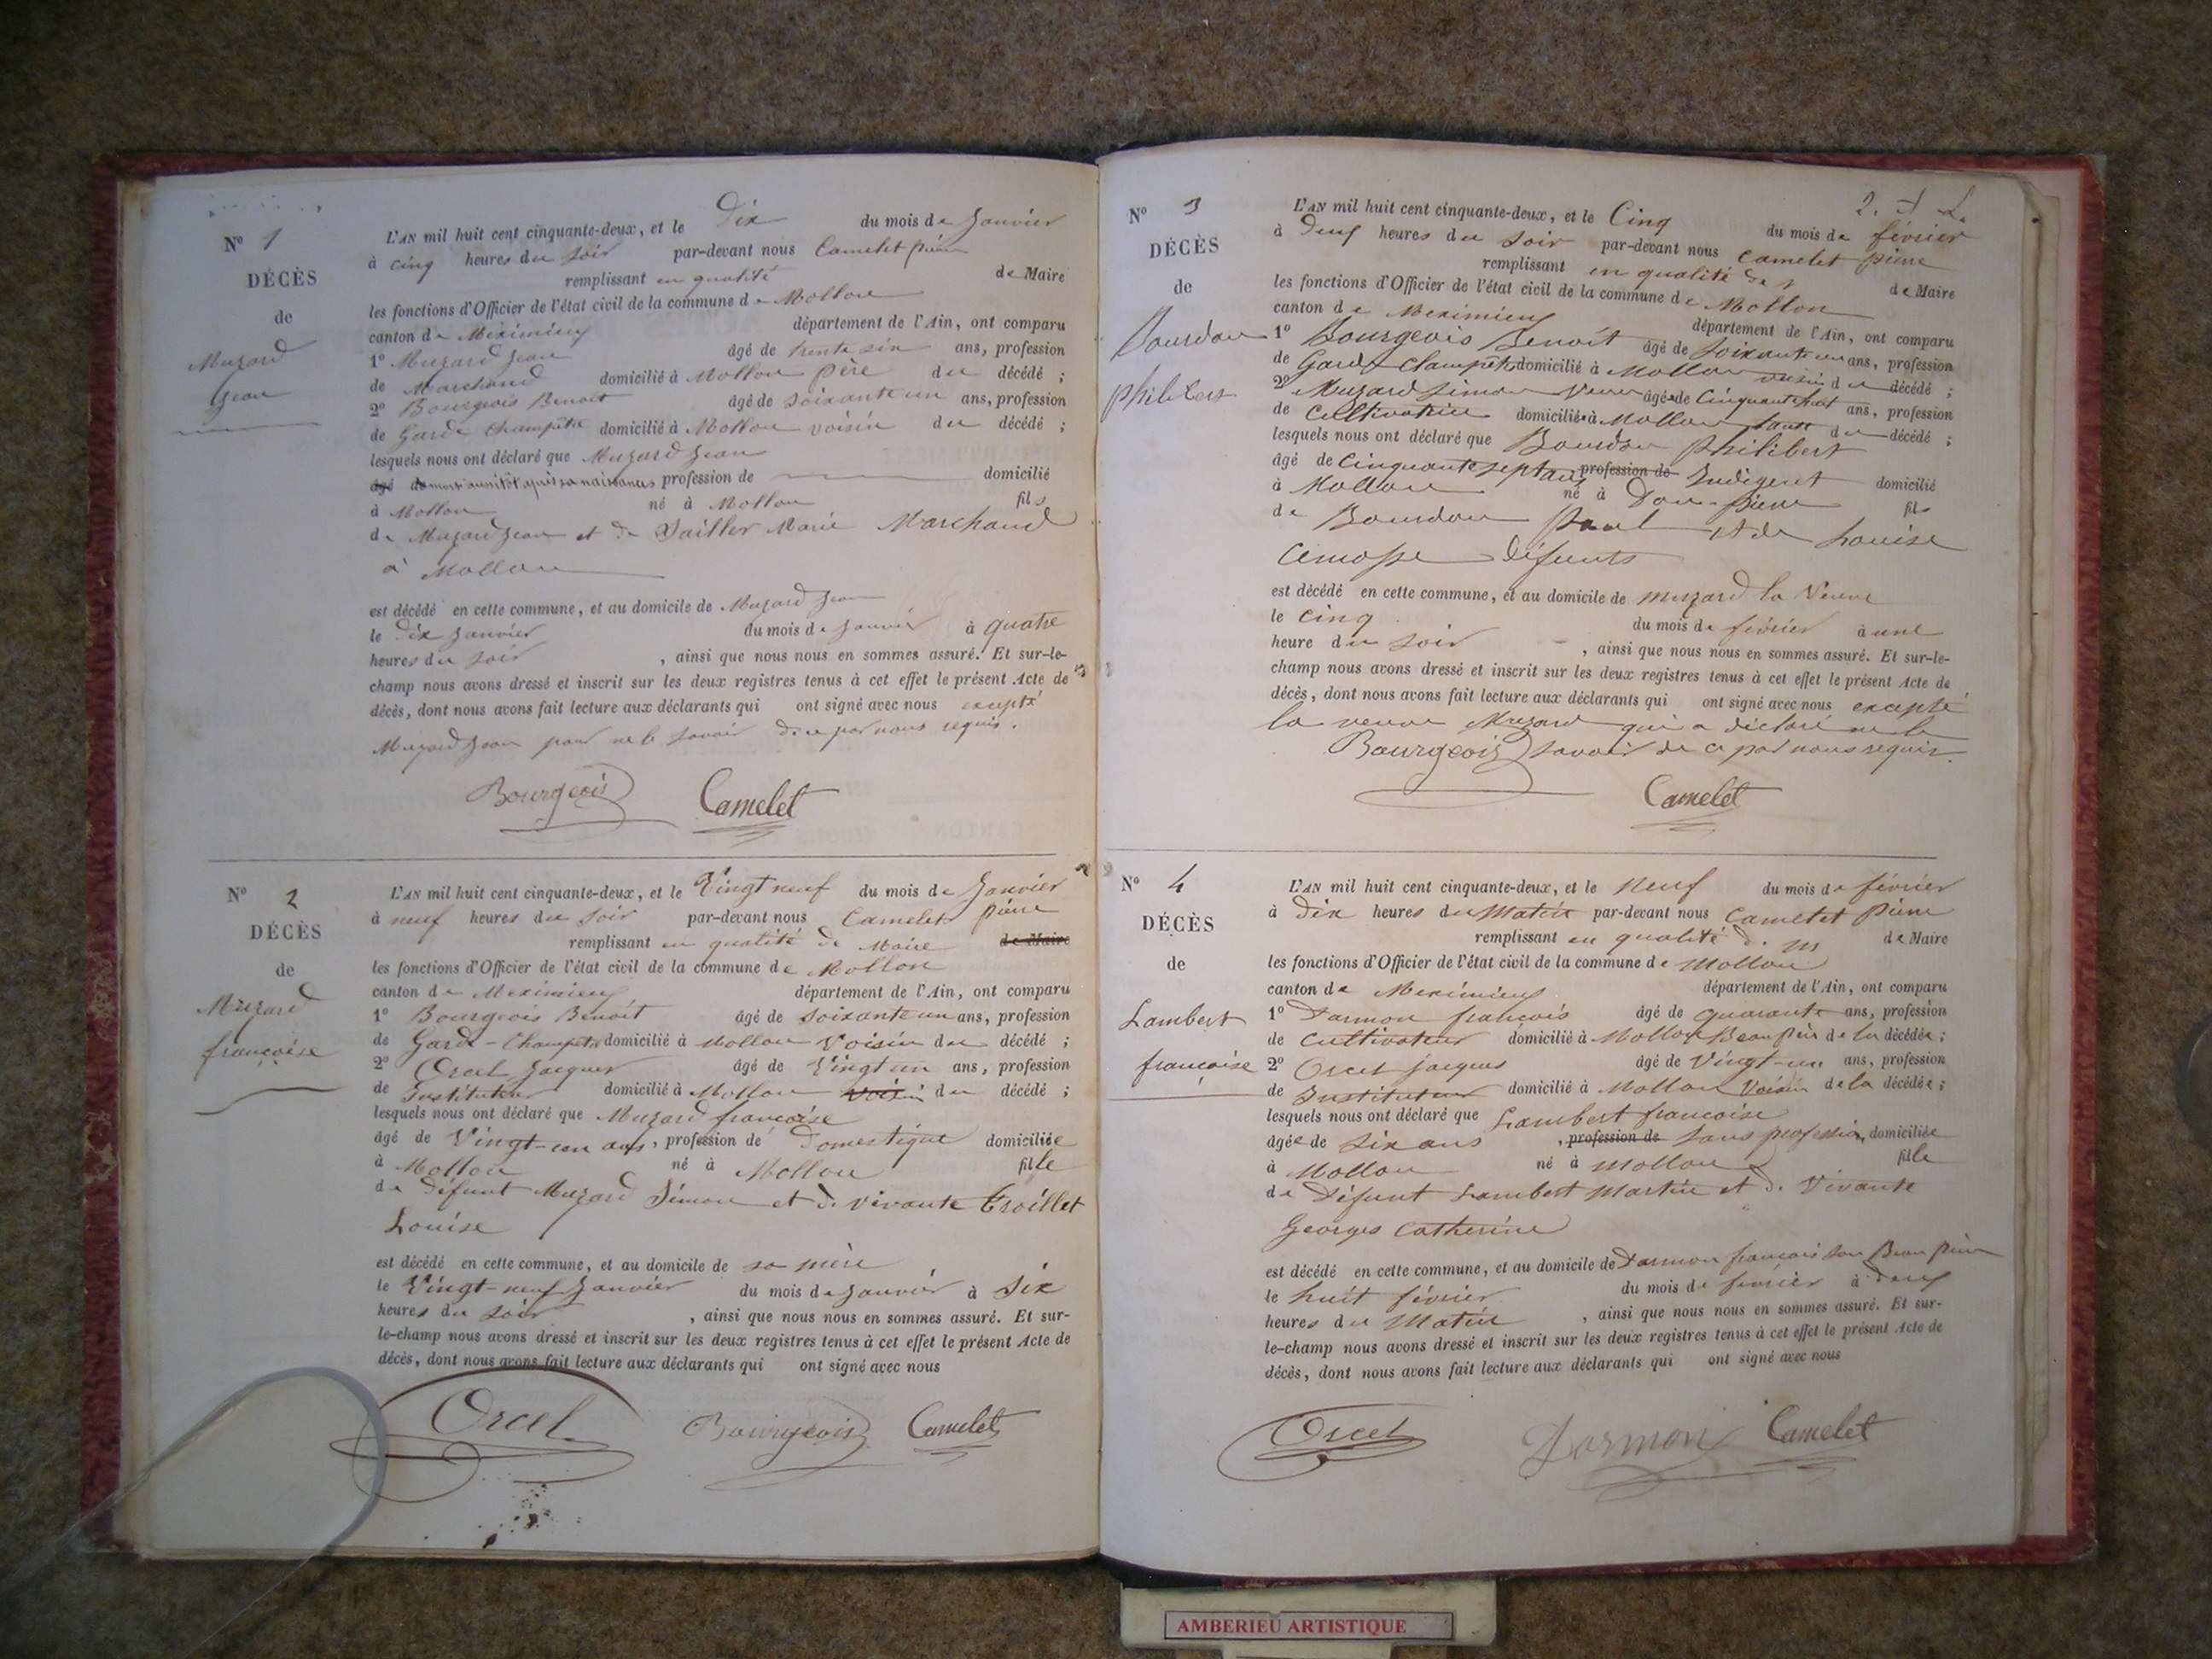 Nº 1
DÉCÈS
de
Muzard
Jean
L'AN mil huit cent cinquante-deux, et le Dix du mois de Janvier
à cinq heures du soir par-devant nous Camelet pierre
remplissant en qualité de Maire
les fonctions d'Officier de l'état civil de la commune de Mollon
canton de Meximieux département de l'Ain, ont comparu
1º Muzard Jean âgé de trente six ans, profession
de Marchand domicilié à Mollon père du décédé ;
2º Bourgeois Benoit âgé de soixante un ans, profession
de Garde Champêtre domicilié à Mollon voisin du décédé ;
lesquels nous ont déclaré que Muzard Jean
âgé de mort aussitôt après sa naissances profession de domicilié
à Mollon né à Mollon fils
de Muzard Jean et de Sailler Marie Marchand
à Mollon
est décédé en cette commune, et au domicile de Muzard Jean
le Dix Janvier du mois de Janvier à quatre
heures du soir , ainsi que nous nous en sommes assuré. Et sur-le-
champ nous avons dressé et inscrit sur les deux registres tenus à cet effet le présent Acte de
décès, dont nous avons fait lecture aux déclarants qui ont signé avec nous excepté
Muzard Jean pour ne le savoir de ce par nous requis.
Bourgeois Camelet
Nº 2
DÉCÈS
de
Muzard
françoise
L'AN mil huit cent cinquante-deux, et le Vingt neuf du mois de Janvier
à neuf heures du soir par-devant nous Camelet pierre
remplissant en qualité de Maire de Maire
les fonctions d'Officier de l'état civil de la commune de Mollon
canton de Meximieux département de l'Ain, ont comparu
1º Bourgeois Benoit âgé de soixante un ans, profession
de Garde-Champêtre domicilié à Mollon Voisin du décédé ;
2º Orcel Jacques âgé de Vingt un ans, profession
de Instituteur domicilié à Mollon voisin du décédé ;
lesquels nous ont déclaré que Muzard françoise
âgé de Vingt-un ans, profession de Domestique domiciliée
à Mollon né à Mollon fille
de défunt Muzard Simon et de vivante Troillet
Louise
est décédé en cette commune, et au domicile de sa mère
le Vingt-neuf Janvier du mois de Janvier à Six
heures du soir , ainsi que nous nous en sommes assuré. Et sur-
le-champ nous avons dressé et inscrit sur les deux registres tenus à cet effet le présent Acte de
décès, dont nous avons fait lecture aux déclarants qui ont signé avec nous
Orcel Bourgeois Camelet
2.
Nº 3
DÉCÈS
de
Bourdon
philibert
L'AN mil huit cent cinquante-deux, et le Cinq du mois de février
à Deux heures du soir par-devant nous Camelet pierre
remplissant en qualité de de Maire
les fonctions d'Officier de l'état civil de la commune de Mollon
canton de Meximieux département de l'Ain, ont comparu
1º Bourgeois Benoit âgé de soixante un ans, profession
de Garde Champêtre domicilié à Mollon voisin du décédé ;
2º Muzard Simon Veuve âgée de Cinquante huit ans, profession
de Cultivatrice domiciliée à Mollon du décédé ;
lesquels nous ont déclaré que Bourdon philibert
âgé de Cinquante sept ans profession de Indigent domicilié
à Mollon né à Dom-pierre fils
de Bourdon Paul et de Louise
défunts
est décédé en cette commune, et au domicile de Muzard la Veuve
le cinq du mois de février à une
heure du soir , ainsi que nous nous en sommes assuré. Et sur-le-
champ nous avons dressé et inscrit sur les deux registres tenus à cet effet le présent Acte de
décès, dont nous avons fait lecture aux déclarants qui ont signé avec nous excepté
la veuve Muzard qui a déclaré ne le
Bourgeois savoir de ce par nous requis.
Camelet
Nº 4
DÉCÈS
de
Lambert
françoise
L'AN mil huit cent cinquante-deux, et le Neuf du mois de février
à Dix heures du Matin par-devant nous Camelet pierre
remplissant en qualité de m de Maire
les fonctions d'Officier de l'état civil de la commune de Mollon
canton de Meximieux département de l'Ain, ont comparu
1º Darmon françois âgé de quarante ans, profession
de Cultivateur domicilié à Mollon Beau père de la décédée ;
2º Orcel jacques âgé de Vingt-un ans, profession
de Instituteur domicilié à Mollon Voisin de la décédée ;
lesquels nous ont déclaré que Lambert françoise
âgée de six ans , profession de sans profession domiciliée
à Mollon né à Mollon fille
de Défunt Lambert Martin et de Vivante
Georges Catherine
est décédé en cette commune, et au domicile de Darmon françois son Beau père
le huit février du mois de février à deux
heures du Matin , ainsi que nous nous en sommes assuré. Et sur-
le-champ nous avons dressé et inscrit sur les deux registres tenus à cet effet le présent Acte de
décès, dont nous avons fait lecture aux déclarants qui ont signé avec nous
Orcel Darmon Camelet
AMBERIEU ARTISTIQUE